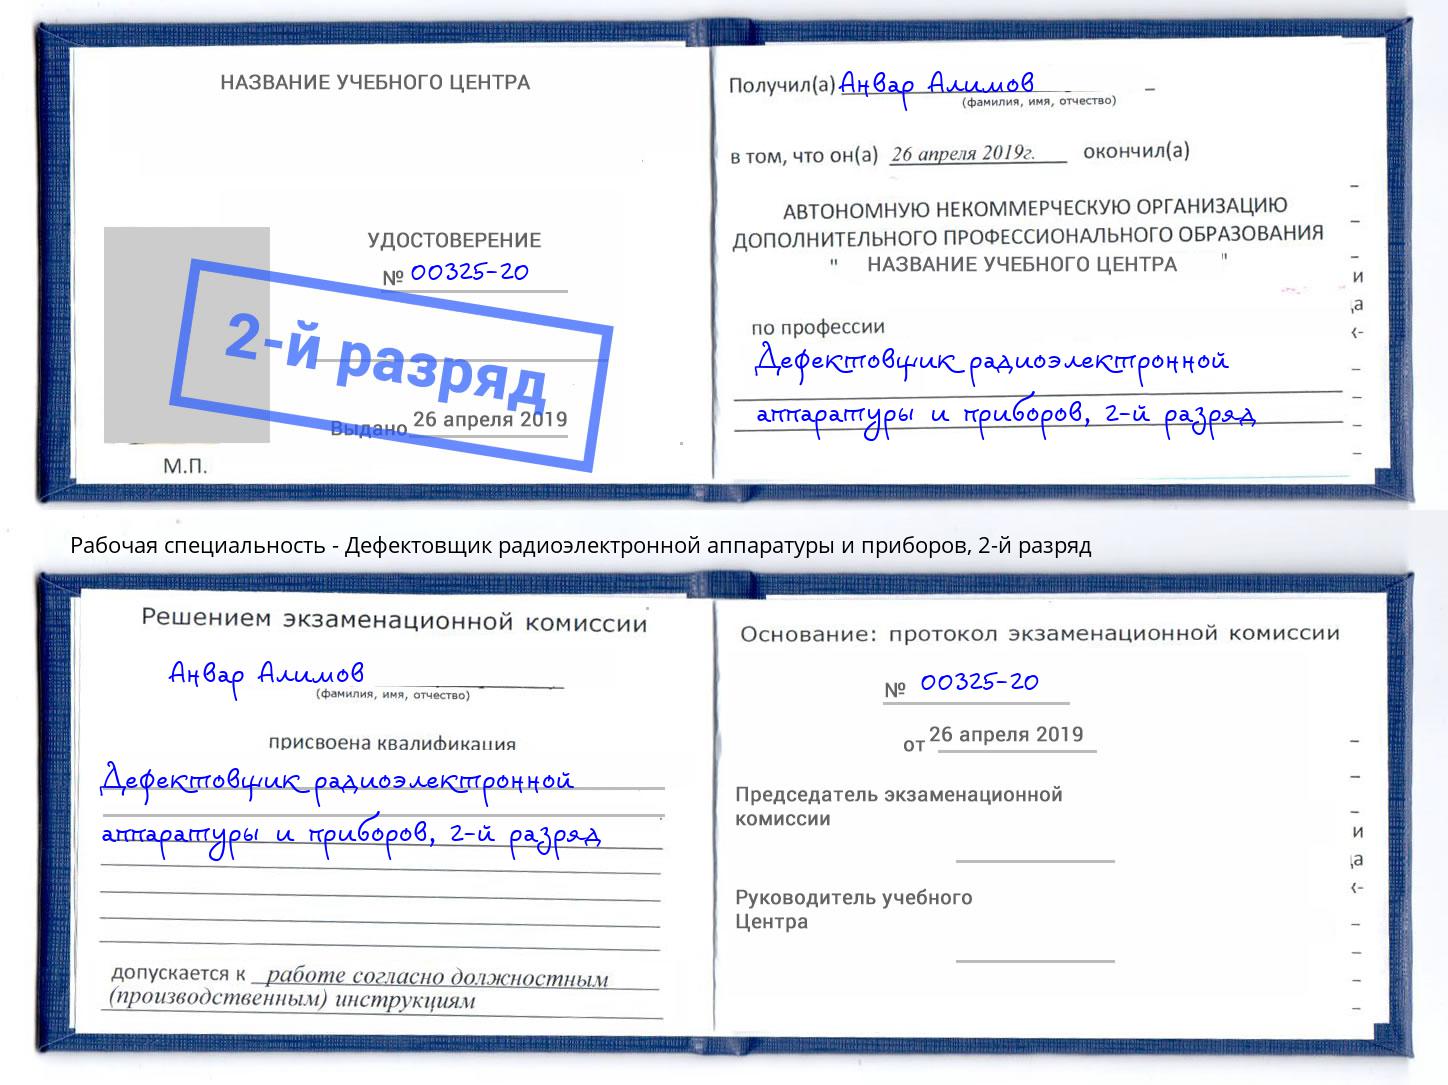 НАЗВАНИЕ УЧЕБНОГО ЦЕНТРА
УДОСТОВЕРЕНИЕ
№ 00325-20
2-й разряд
Выдано 26 апреля 2019
М.П.
Получил(а) Анвар Алимов
(фамилия, имя, отчество)
в том, что он(а) 26 апреля 2019г. окончил(а)
АВТОНОМНУЮ НЕКОММЕРЧЕСКУЮ ОРГАНИЗАЦИЮ
ДОПОЛНИТЕЛЬНОГО ПРОФЕССИОНАЛЬНОГО ОБРАЗОВАНИЯ
" НАЗВАНИЕ УЧЕБНОГО ЦЕНТРА "
по профессии
Дефектовщик радиоэлектронной
аппаратуры и приборов, 2-й разряд
Рабочая специальность - Дефектовщик радиоэлектронной аппаратуры и приборов, 2-й разряд
Решением экзаменационной комиссии
Анвар Алимов
(фамилия, имя, отчество)
присвоена квалификация
Дефектовщик радиоэлектронной
аппаратуры и приборов, 2-й разряд
допускается к работе согласно должностным
(производственным) инструкциям
Основание: протокол экзаменационной комиссии
№ 00325-20
от 26 апреля 2019
Председатель экзаменационной
комиссии
Руководитель учебного
Центра